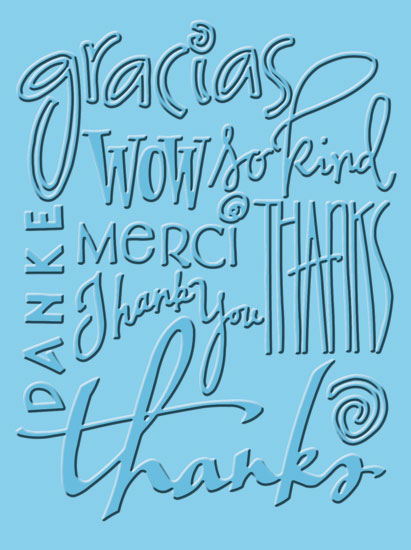 gracias
WOW so kind
DANKE
MERCi
THANKS
Thank You
thanks